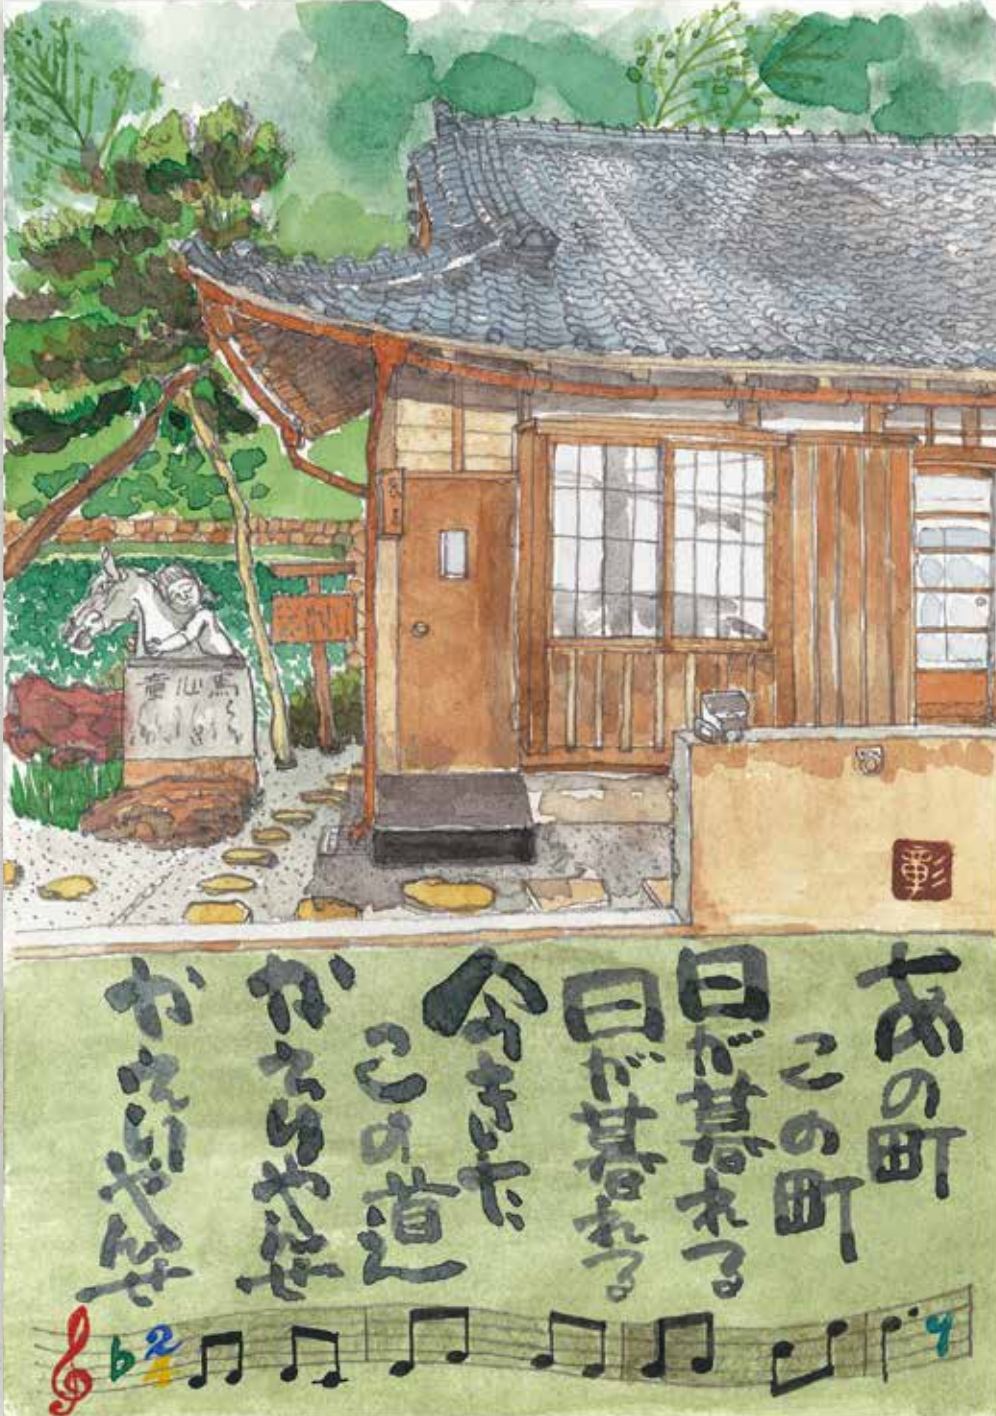 あの町
この町
日が暮れる
日が暮れる
今きた
この道
かえりやんせ
かえりやんせ
彰